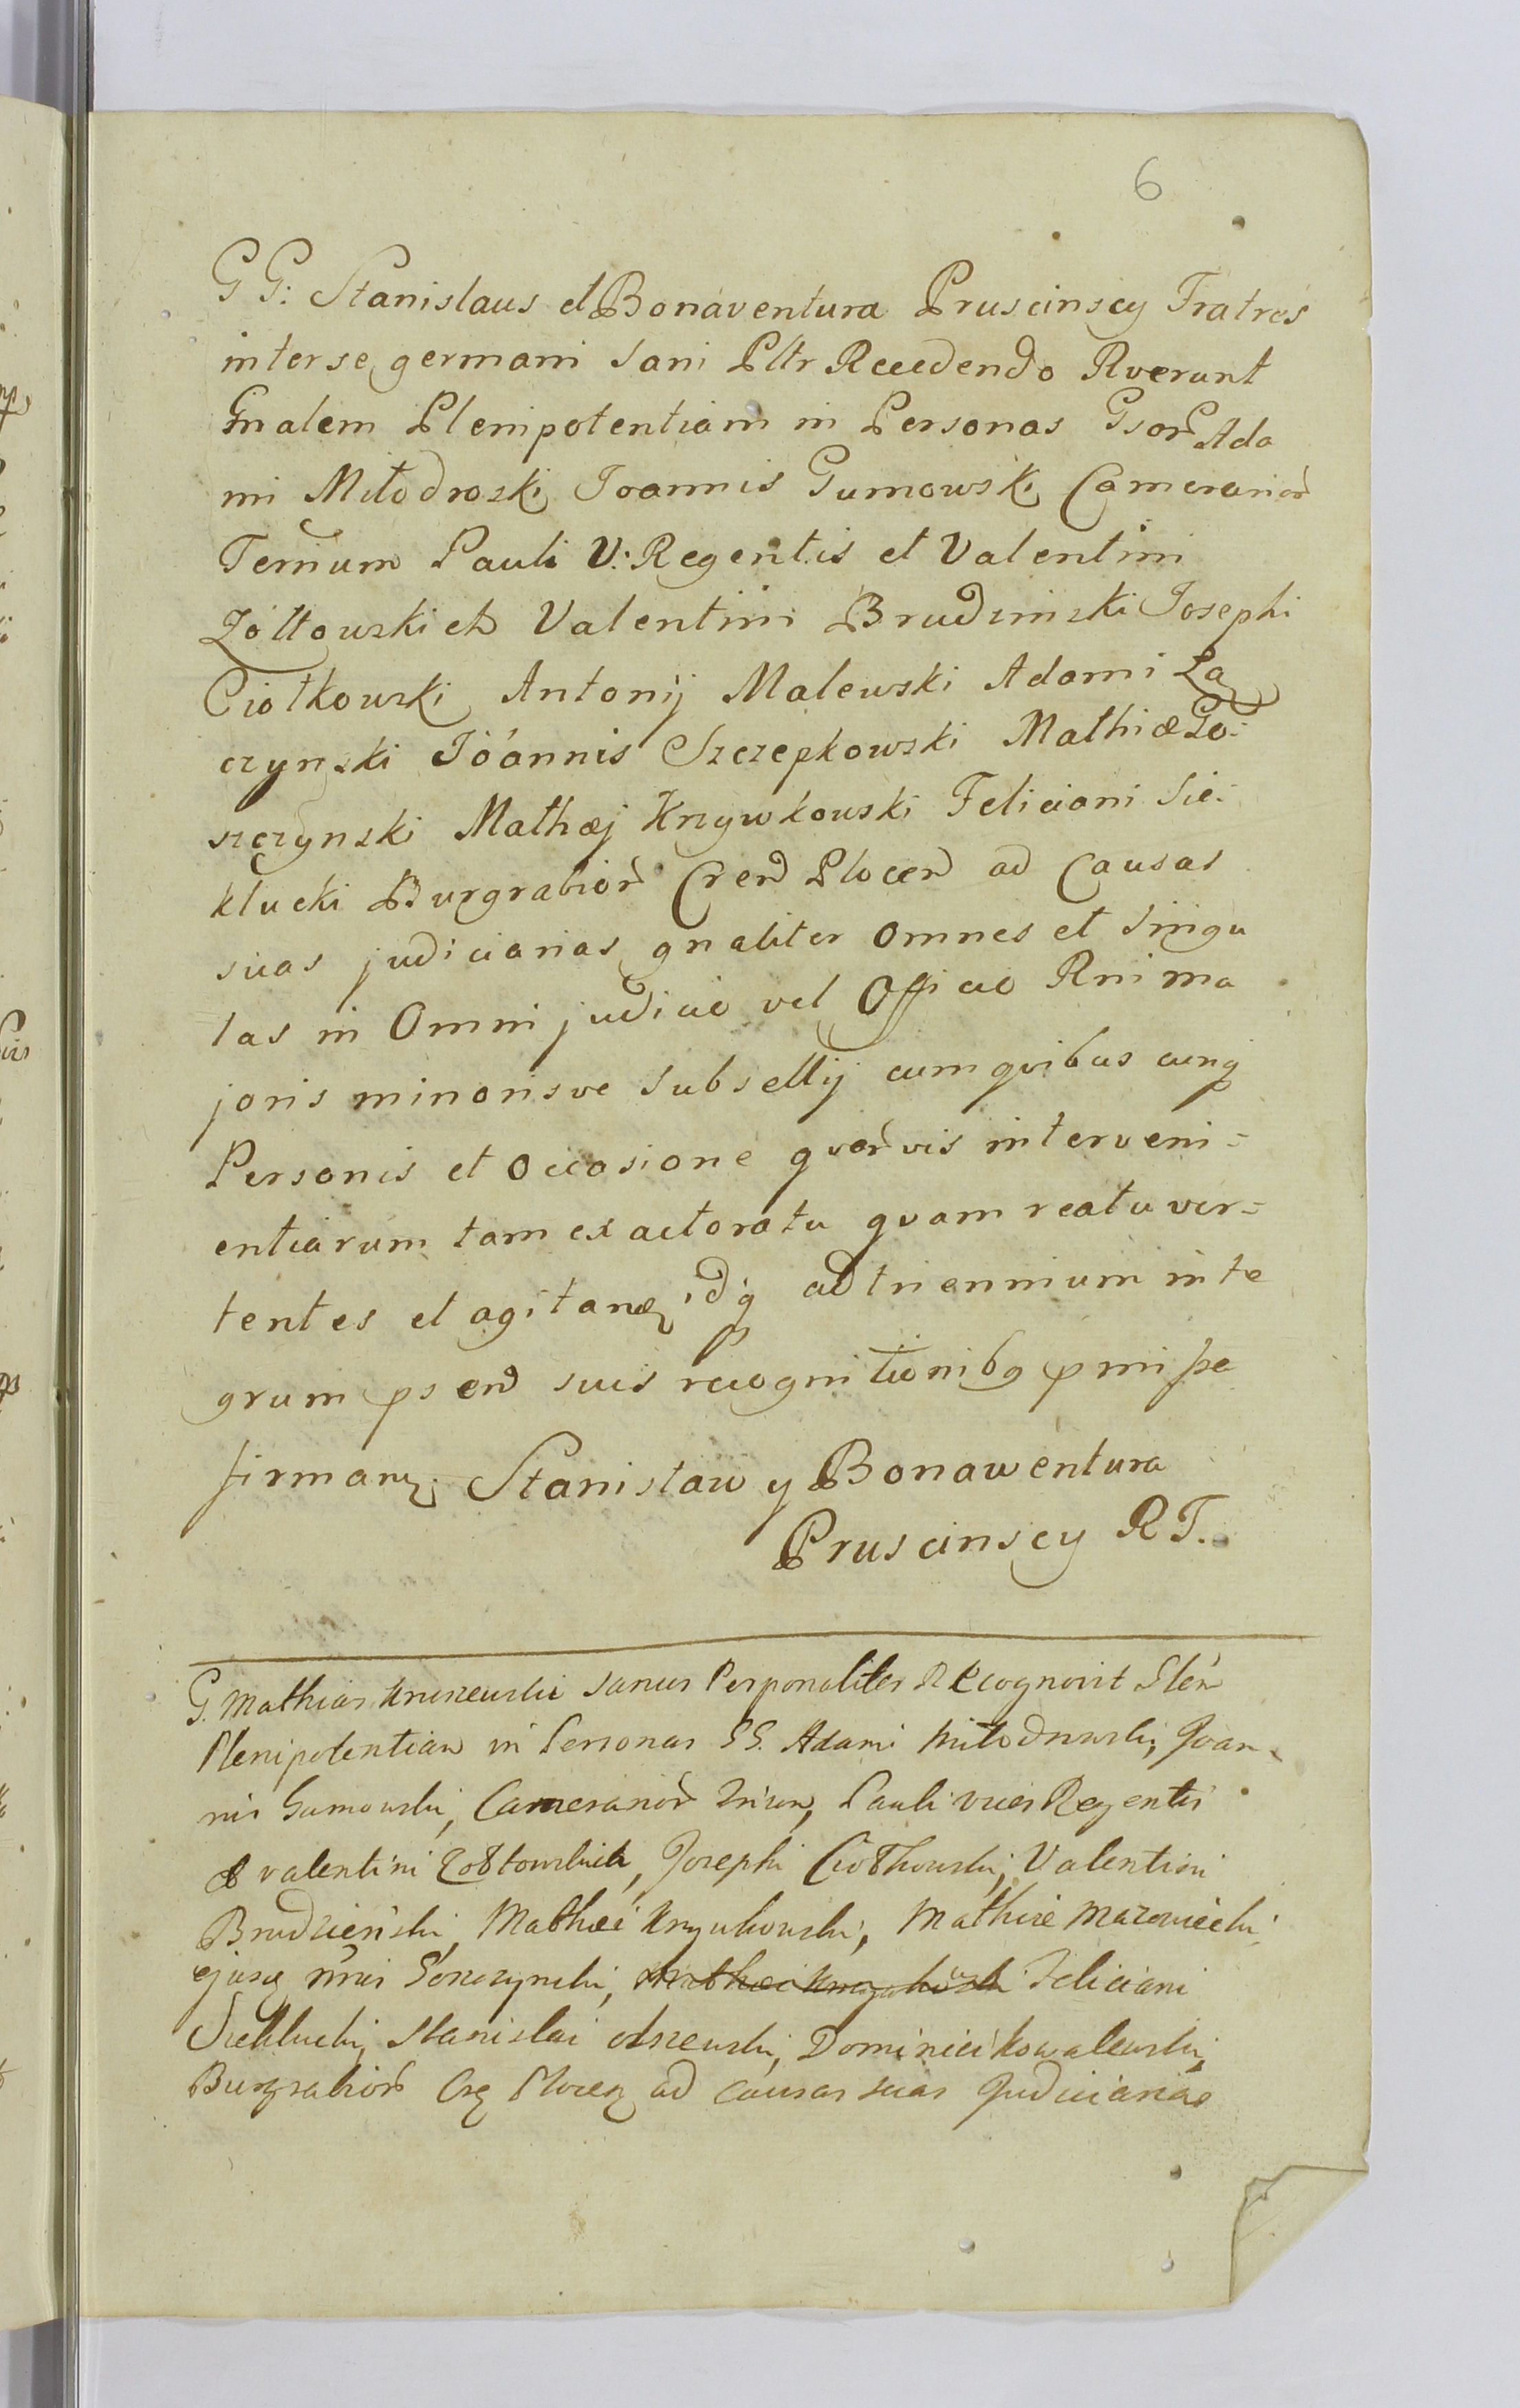 6
G G: Stanislaus et Bonaventura Pruscinscy Fratres
inter se germani Sani Pltr Recedendo Rverunt
Gnalem Plenipotentiam in Personas Gsor Ada
mi Miłodroski Joannis Gumowski Camerarior
Ternum Pauli V: Regentis et Valentini
Zółtowskich Valentini Brudzinski Josephi
Ciołkowski Antonij Malewski Adami La
czynski Joannis Szczepkowski Mathiæ Go-
szczynski Mathæj Krzywkowski Feliciani Sie-
klucki Burgrabior Cren Plocen ad Causas
suas judiciarias gnaliter omnes et singu
las in Omni judicio vel Officio Rni ma
joris minorisve Subsellij cum quibus cunq
Personis et occasione qvorvis interveni-
entiarum tam ex actoratu qvam reatu ver-
tentes et agitanz idq ad triennium inte
grum psen suis recognitionibq pmissa
firmanz. Stanisław y Bonawentura
Pruscinscy RT.
G. Mathias Kruszewski sanus Personaliter Recognovit Plen
Plenipotentiam in Personas GG. Adami Miłodrowski, Joan-
nis Gumowski, Camerarior Pauli vices Regentis
& valentini Zołtowskich, Josephi Ciołkowski, Valentini
Brudzieński, Mathæi Krzywkowski, Mathiæ Mazowiecki
ejusq nnis Goszczynski, Feliciani
Sieklucki, Stanislai olszewski, Dominici Kowalewski,
Burgrabior Crz Plocen ad causas suas Judiciarias